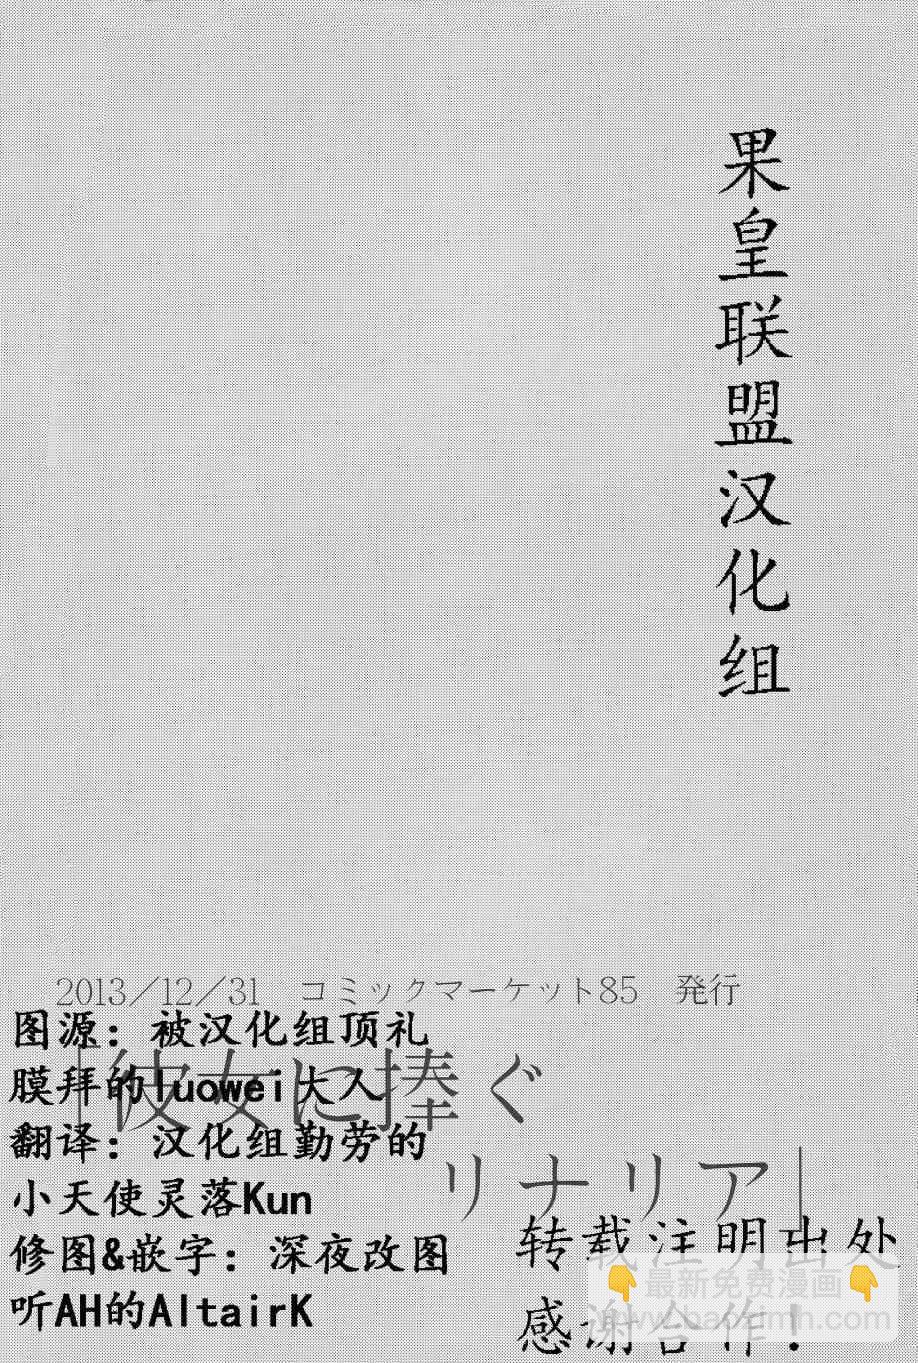 果皇联盟汉化组
2013／12／31 コミックマーケット85 発行
「彼女に捧ぐ
リナリア」
图源：被汉化组顶礼
膜拜的luowei大人
翻译：汉化组勤劳的
小天使灵落Kun
修图&嵌字：深夜改图
听AH的AltairK
转载注明出处
感谢合作！
👇最新免费漫画👇
www.baozimh.com